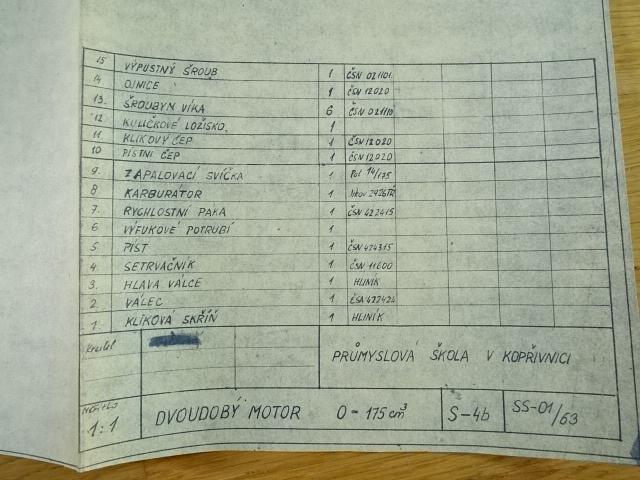 15 VÝPUSTNÝ ŠROUB 1 ČSN 021101
14 OJNICE 1 ČSN 12020
13. ŠROUBYM VÍKA 6 ČSN 021110
12 KULIČKOVÉ LOŽISKO. 1
11 KLIKOVÝ ČEP 1 ČSN 12020
10 PÍSTNÍ ČEP 1 ČSN 12020
9. ZAPALOVACÍ SVÍČKA 1 Pal 14/175
8 KARBURÁTOR 1 Jikov 2926
7. RYCHLOSTNÍ PAKA 1 ČSN 422415
6 VÝFUKOVÉ POTRUBÍ 1
5 PÍST 1 ČSN 424315
4 SETRVAČNÍK 1 ČSN 11600
3. HLAVA VÁLCE 1 HLINÍK
2. VÁLEC 1 ČSN 422424
1. KLIKOVÁ SKŘÍŇ 1 HLINÍK
Kreslil
PRŮMYSLOVÁ ŠKOLA V KOPŘIVNICI
Měřítko
1:1 DVOUDOBÝ MOTOR O = 175 cm³ S-4b SS-01/53